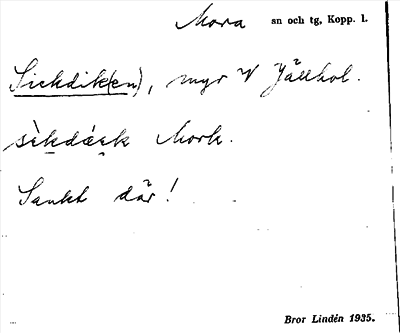 Mora sn och tg, Kopp. l.
Sickdik(en), myr V Jällhol.
sìkdáɛk Mork.
Sankt där!
Bror Lindén 1935.